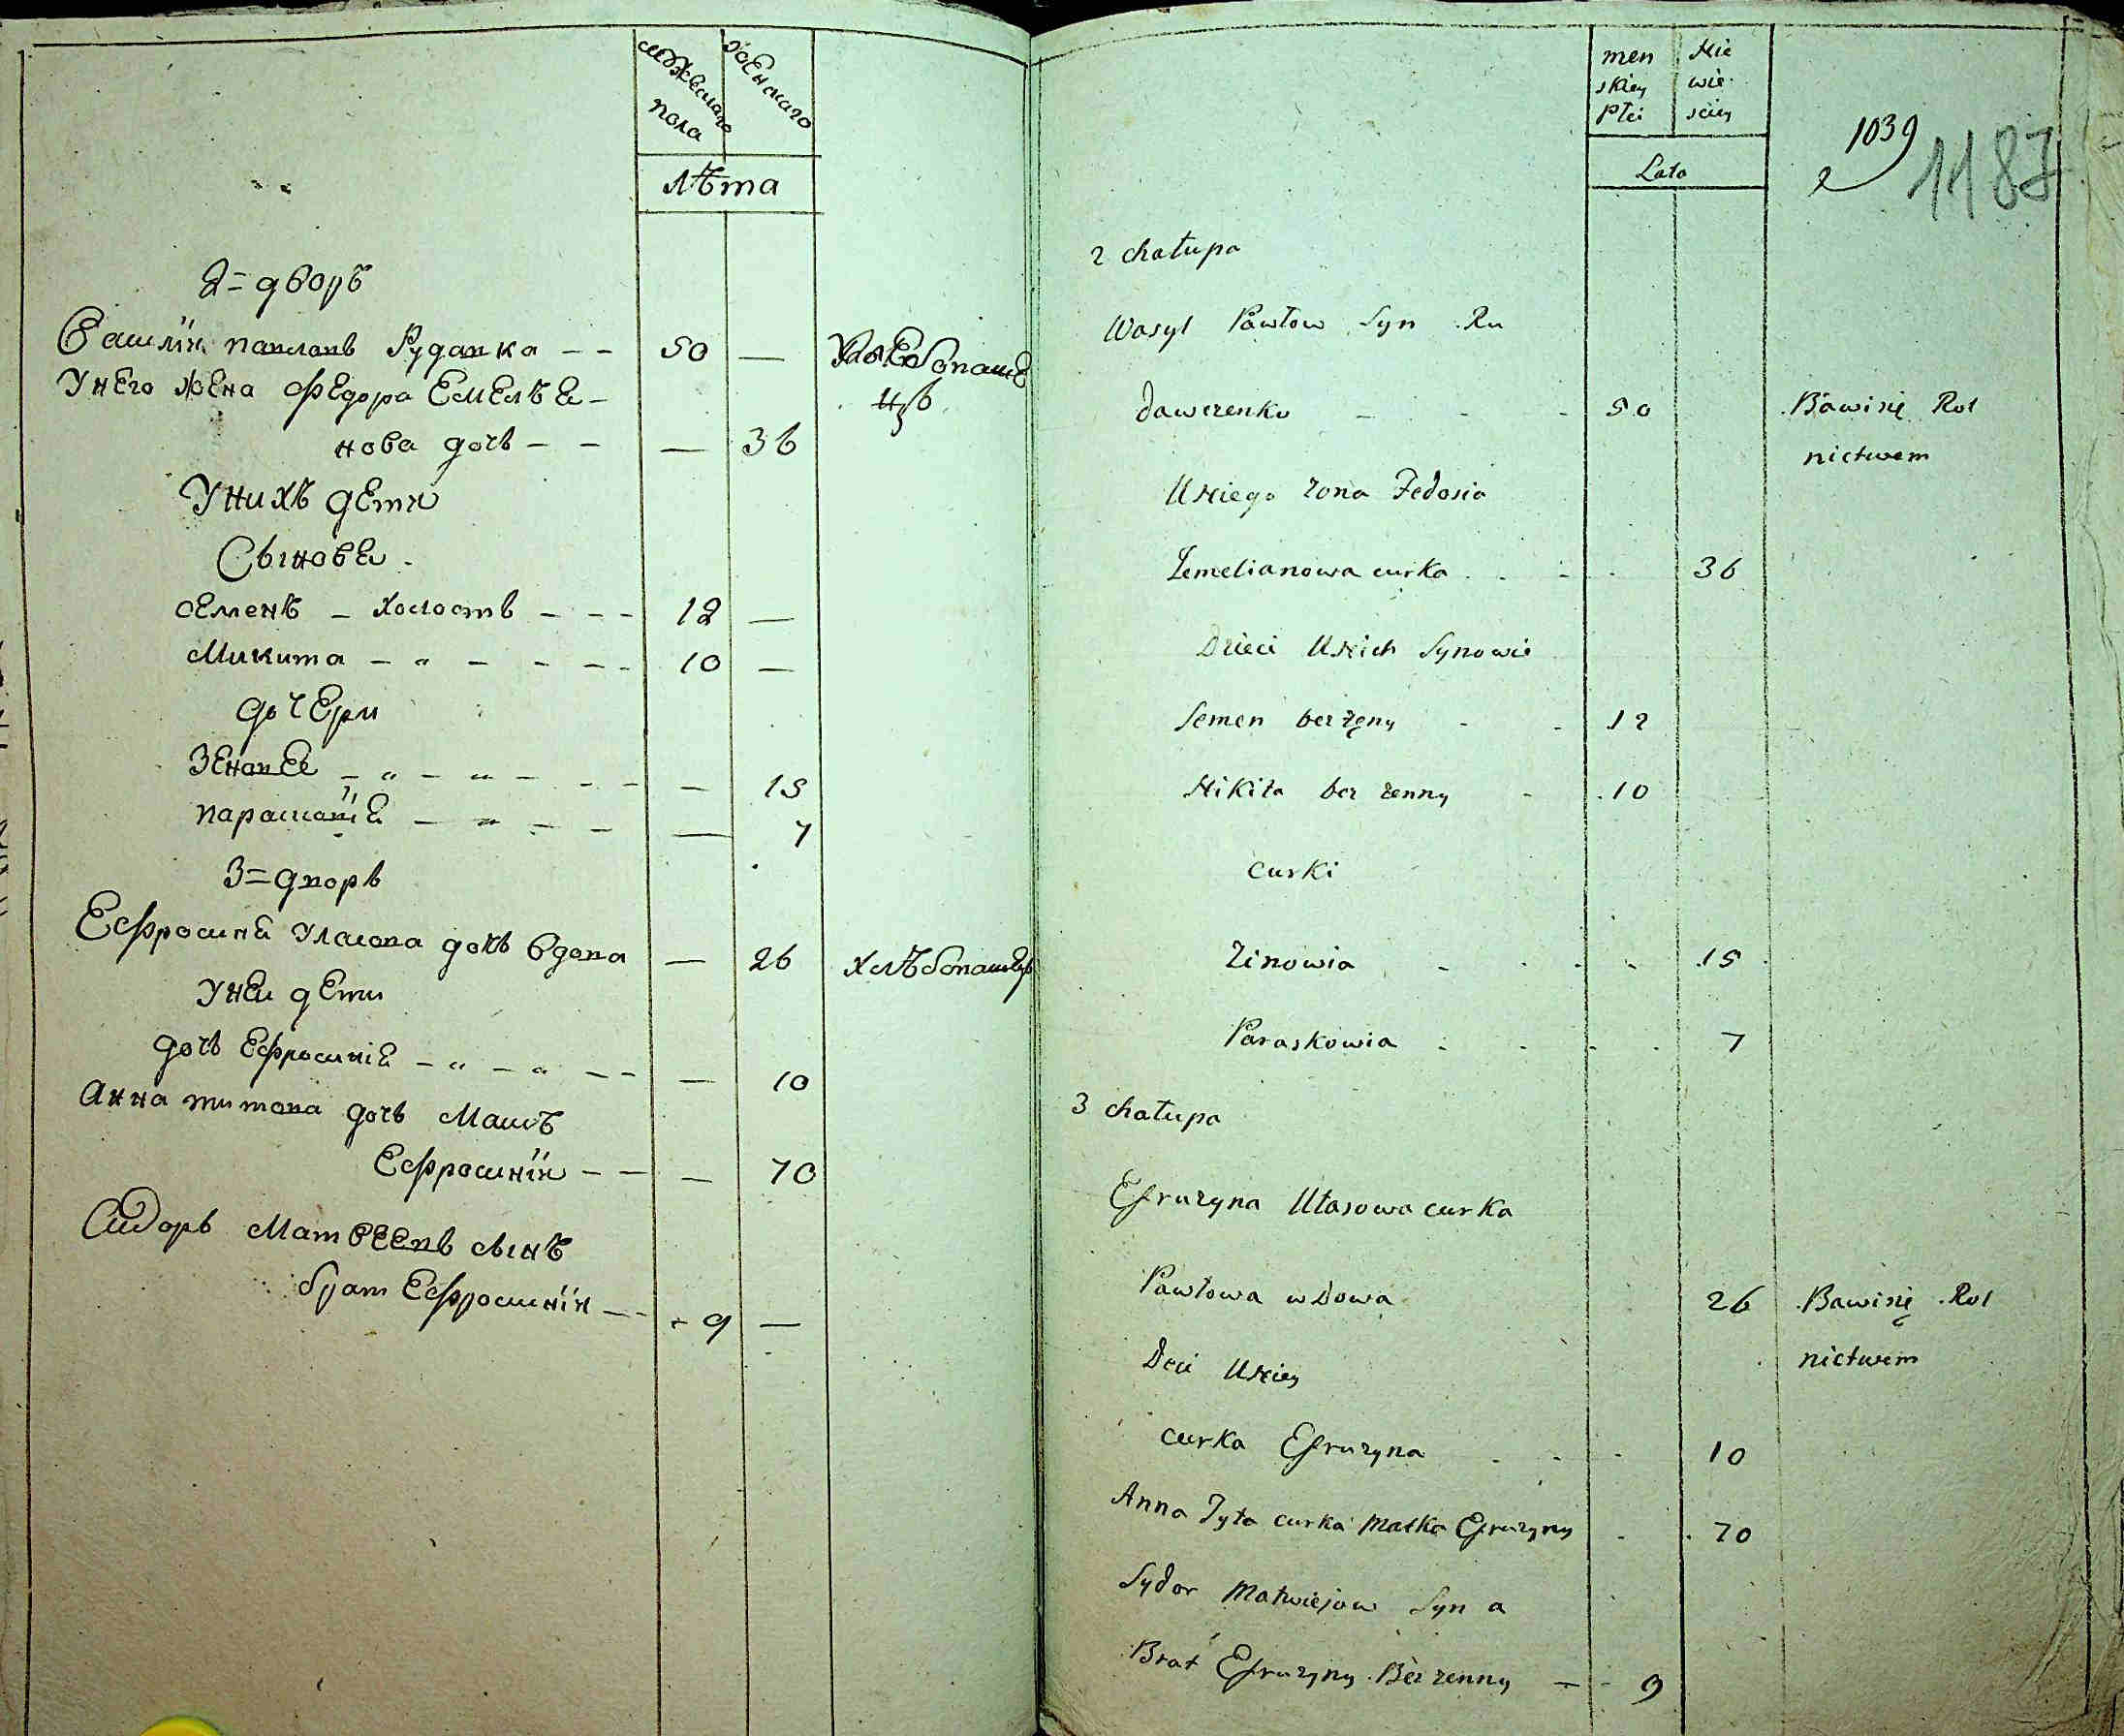 мужескаго
пола
женскаго
лѣта
2=дворъ
Василій павловъ Рудавка - - 50 — хлебопаше
цъ
Унего жена Федора Емелѣе-
нова дочь - - — 36
Унихъ дети
Сынове
семенъ - холостъ - - - 12 —
Микита - " - - - - 10 —
дочери
Зеновее - " - " - - - — 15
параскевіе - " - - — 7
3=дворъ
Ефросине уласова дочь вдова — 26 хлѣбопашецъ
Уней дети
дочь Ефросиніе - " - " - - — 10
Анна титова дочь Матѣ
Ефросиніи - - — 70
Сидоръ Матвеевъ сынъ
братъ Ефросиніи - - 9 —
men
skiey
Płci
Nie
wie
sciey
Lata
1039
2
1187
2 chałupa
Wasyl Pawłow Syn Ru
dawczenko - - - 50 Bawisię Rol
nictwem
Uniego żona Fedosia
Jemelianowa curka 36
Dzieci Unich Synowie
Semen bez żęny - - 12
Nikita bez żenny - 10
curki
Zinowia - - - - 15
Paraskowia - - - - 7
3 chałupa
Efruzyna Ułasowa curka
Pawłowa wdowa 26 Bawisię Rol
nictwem
Deci Uniey
curka Efruzyna - - - 10
Anna Tyta curka Matka Efruzyny - 70
Sydor Matwiejow Syn a
Brat Efruzyny Bez zenny - - 9